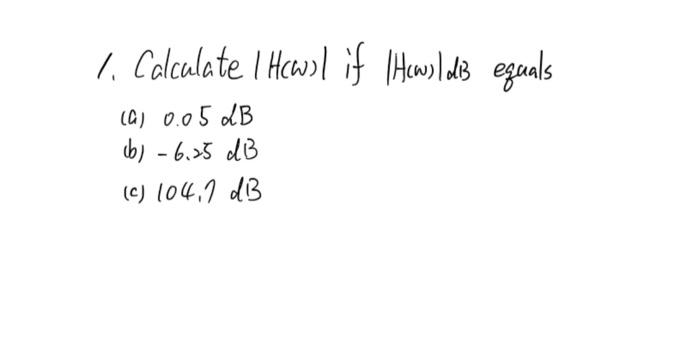 1. Calculate |H(ω)| if |H(ω)|dB equals
(a) 0.05 dB
(b) -6.25 dB
(c) 104.7 dB